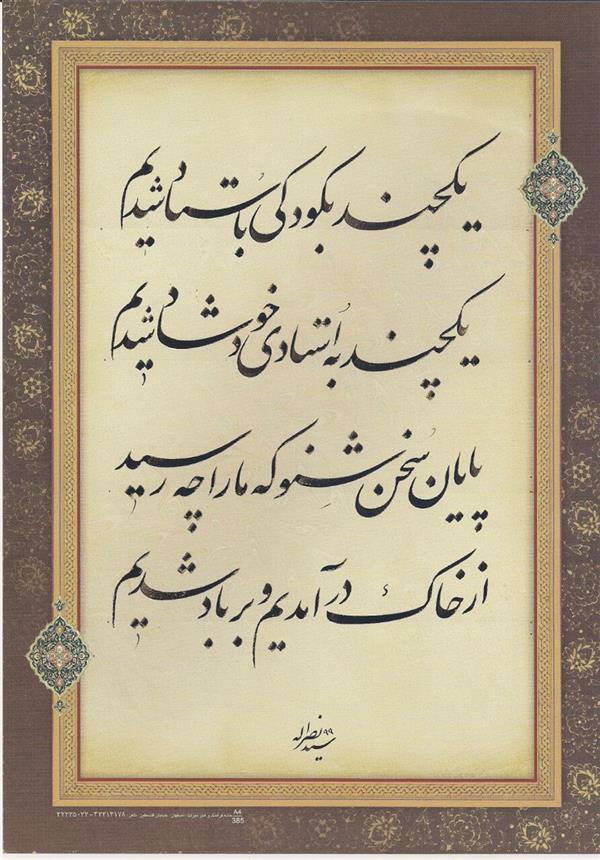 یکچند بکودکی باستاد شدیم
یکچند به اُستادی خود شاد شدیم
پایان سُخن شنو که ما را چه رسید
از خاک در آمدیم و بر باد شدیم
سید نصراله ۹۹
A4
385